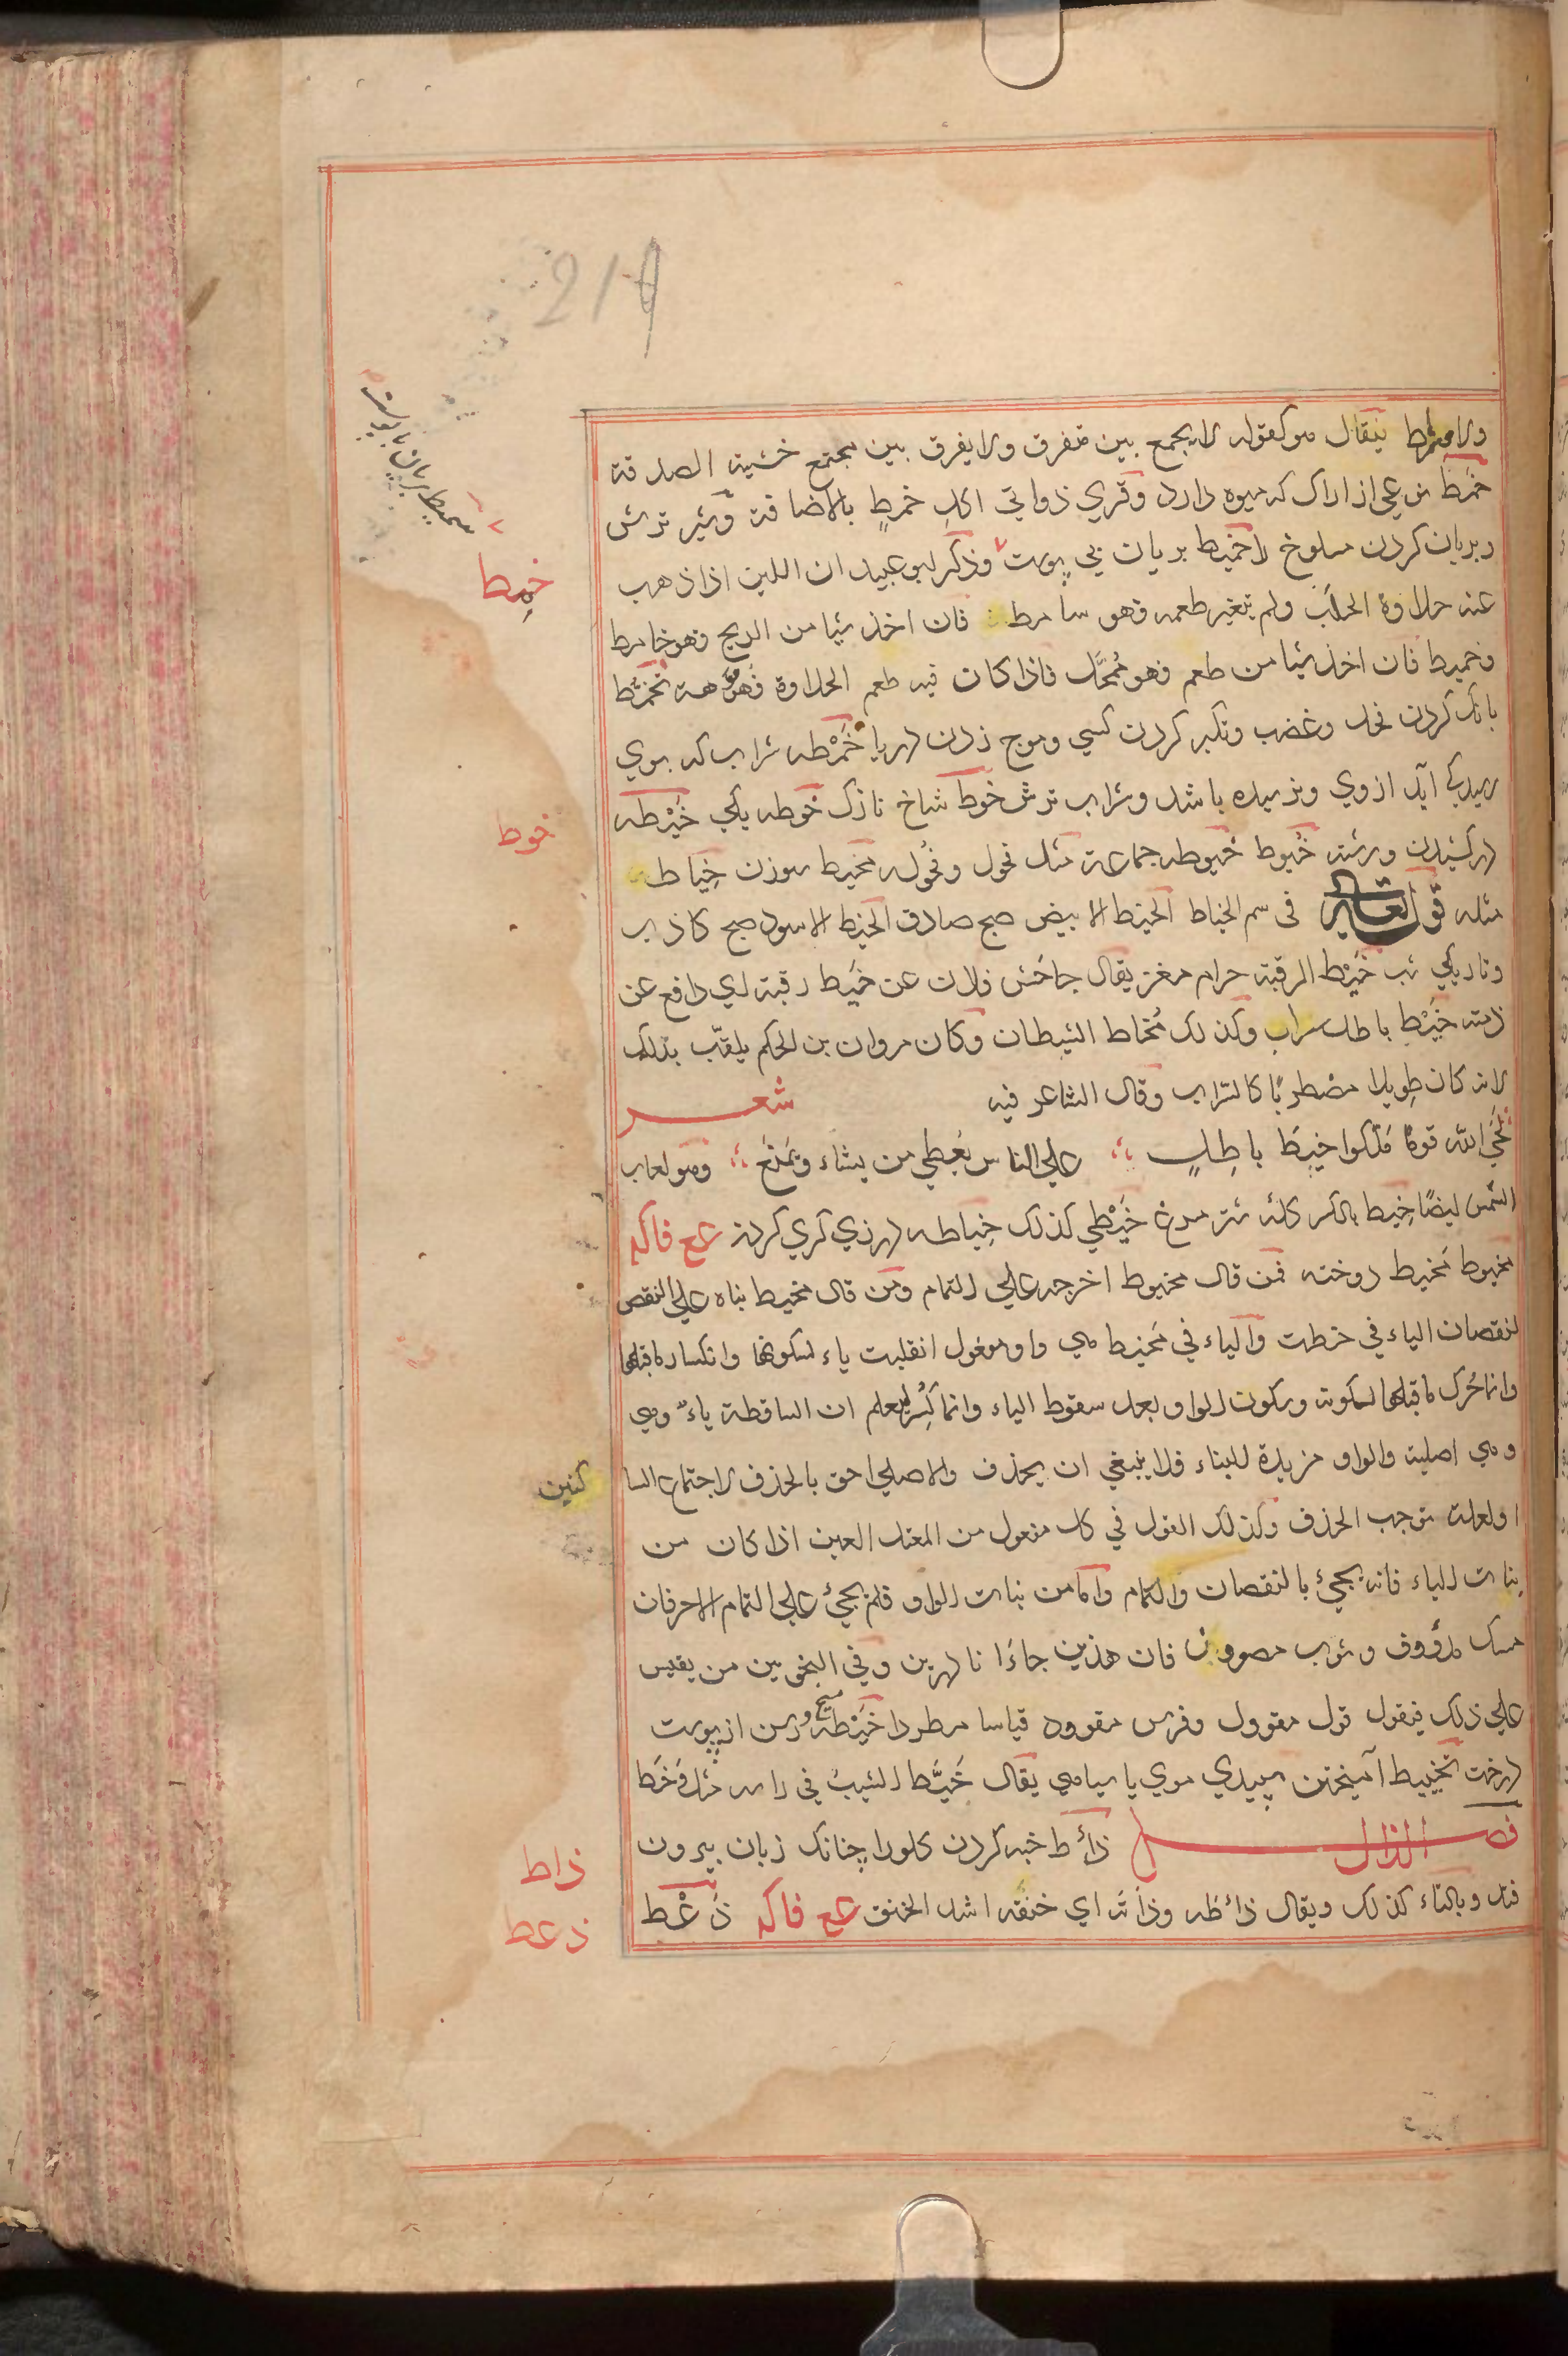 219
ولا وراط فیقال هو کقوله لا یجمع بین متفرق ولا یفرق بین مجتمع خشیة الصدقة
خَمْط نوعی از اراک که میوه دارد وقری ذواتی اُکلِ خمطٍ بالاضافة وشیر ترش
وبریان کردن مسلوخ را خمیط بریان بی پوست وذکر ابو عبید ان اللبن اذا ذهب
عنه حلاوة الحلَب ولم یتغیر طعمه فهو سامط فان اخذ شیا من الریح فهو خامط
وخمیط فان اخذ شیا من طعم فهو مُمَحَّل فاذا کان فیه طعم الحلاوة فهو قوهة تخمّط
بانک کردن فحل وغضب وتکبر کردن کسی وموج زدن دریا خَمْطه شراب که بوی
رسیدگی آید از وی ونرسیده باشد وشراب ترش خوط شاخ نازک خوطه یکی خَیْطه
درکشیدن ورشته خُیوط خُیوطه جماعة مثل فحول وفُحوله مخیط سوزن خِیاط
مثله قوله تعالی فی سم الخیاط الخیط الابیض صبح صادق الخیط الاسود صبح کاذب
وتاریکی شب خَیْط الرقبة حرام مغز یقال جاحَش فلان عن خَیط رقبته ای دافع عن
دمه خَیْط باطل سراب وکذلک مُخاط الشیطان وکان مروان بن الحکم یلقّب بذلک
لانه کان طویلا مضطربًا کالتراب وقال الشاعر فیه شعر
لَحَی الله قومًا مَلّکوا خیطَ باطِلٍ علی الناس یُعطی من یشاء ویَمنَع وهو لعاب
الشمس ایضًا خِیط بالکسر کله شتر مرغ خَیْطی کذلک خِیاطه درزی کری کردن ع ع فاکه
مخیوط مَخیط دوخته فمن قال مخیوط اخرجه علی التمام ومن قال مخیط بناه علی النقص
لنقصان الیاء فی خطت والیاء فی مَخیط هی واو مفعول انقلبت یاء لسکونها وانکسار ما قبلها
وانما حُرک ما قبلها لسکونه وسکون الواو بعد سقوط الیاء وانما کُسِر لیعلم ان الساقطة یاءٌ وهی
وهی اصلیة والواو مزیدة للبناء فلا ینبغی ان یحذف والاصلی احق بالحذف لاجتماع السا
کنین
او لعلة توجب الحذف وکذلک القول فی کل مفعول من المعتل العین اذا کان من
بنات الیاء فانه یجئ بالنقصان والتمام واما من بنات الواو فلم یجئ علی التمام الا حرفان
مسک مدؤوف وثوب مصوون فان هذین جاءَا نادرین وفی النحویین من یقیس
علی ذلک فیقول قول مقوول وفرس مقوود قیاسا مطردا خَیْطه میخ ورسن از پوست
درخت تخییط آمیختن سپیدی موی با سیاهی یقال خَیَّط الشیبُ فی راسه مثل وَخَط
فصل الذال ذأط خبه کردن کلو را چنانک زبان بیرون
فتد وبالتاء کذلک ویقال ذائطه وذأته ای خنقه اشد الخنق ع ع فاکه ذَعْط
سمیط بریان با پوست
خیط
خوط
ذاط
ذعط